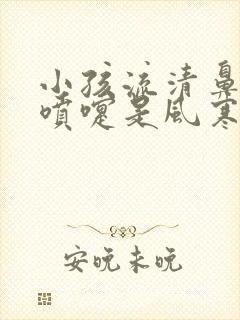 小孩流清鼻
喷嚏是风寒
安晚未晚